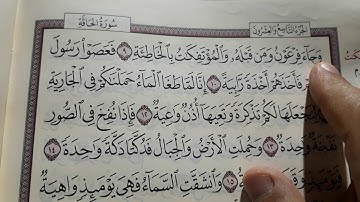 سُورَةُ الحَاقَّةِ الجُزْءُ التَّاسِعُ وَالعِشْرُونَ
وَجَآءَ فِرْعَوْنُ وَمَن قَبْلَهُۥ وَٱلْمُؤْتَفِكَٰتُ بِٱلْخَاطِئَةِ ٩ فَعَصَوْا۟ رَسُولَ
فَأَخَذَهُمْ أَخْذَةً رَّابِيَةً ١٠ إِنَّا لَمَّا طَغَا ٱلْمَآءُ حَمَلْنَٰكُمْ فِى ٱلْجَارِيَةِ
لِنَجْعَلَهَا لَكُمْ تَذْكِرَةً وَتَعِيَهَآ أُذُنٌ وَٰعِيَةٌ ١٢ فَإِذَا نُفِخَ فِى ٱلصُّورِ
وَٰحِدَةٌ ١٣ وَحُمِلَتِ ٱلْأَرْضُ وَٱلْجِبَالُ فَدُكَّتَا دَكَّةً وَٰحِدَةً ١٤
فَيَوْمَئِذٍ ١٥ وَٱنشَقَّتِ ٱلسَّمَآءُ فَهِىَ يَوْمَئِذٍ وَاهِيَةٌ